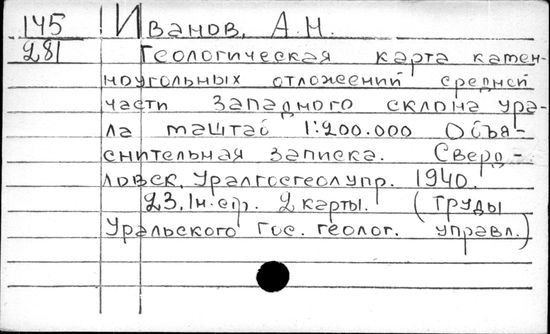 145 Иванов, А.Н.
281 Геологическая карта камен-
ноугольных отложений средней
части западного склона Ура-
ла масштаб 1:200.000 Объя-
снительная записка. Сверд-
ловск, Уралгосгеолупр. 1940.
23, 1н. стр. 2 карты. (Труды
Уральского Гос. геолог. управл.)